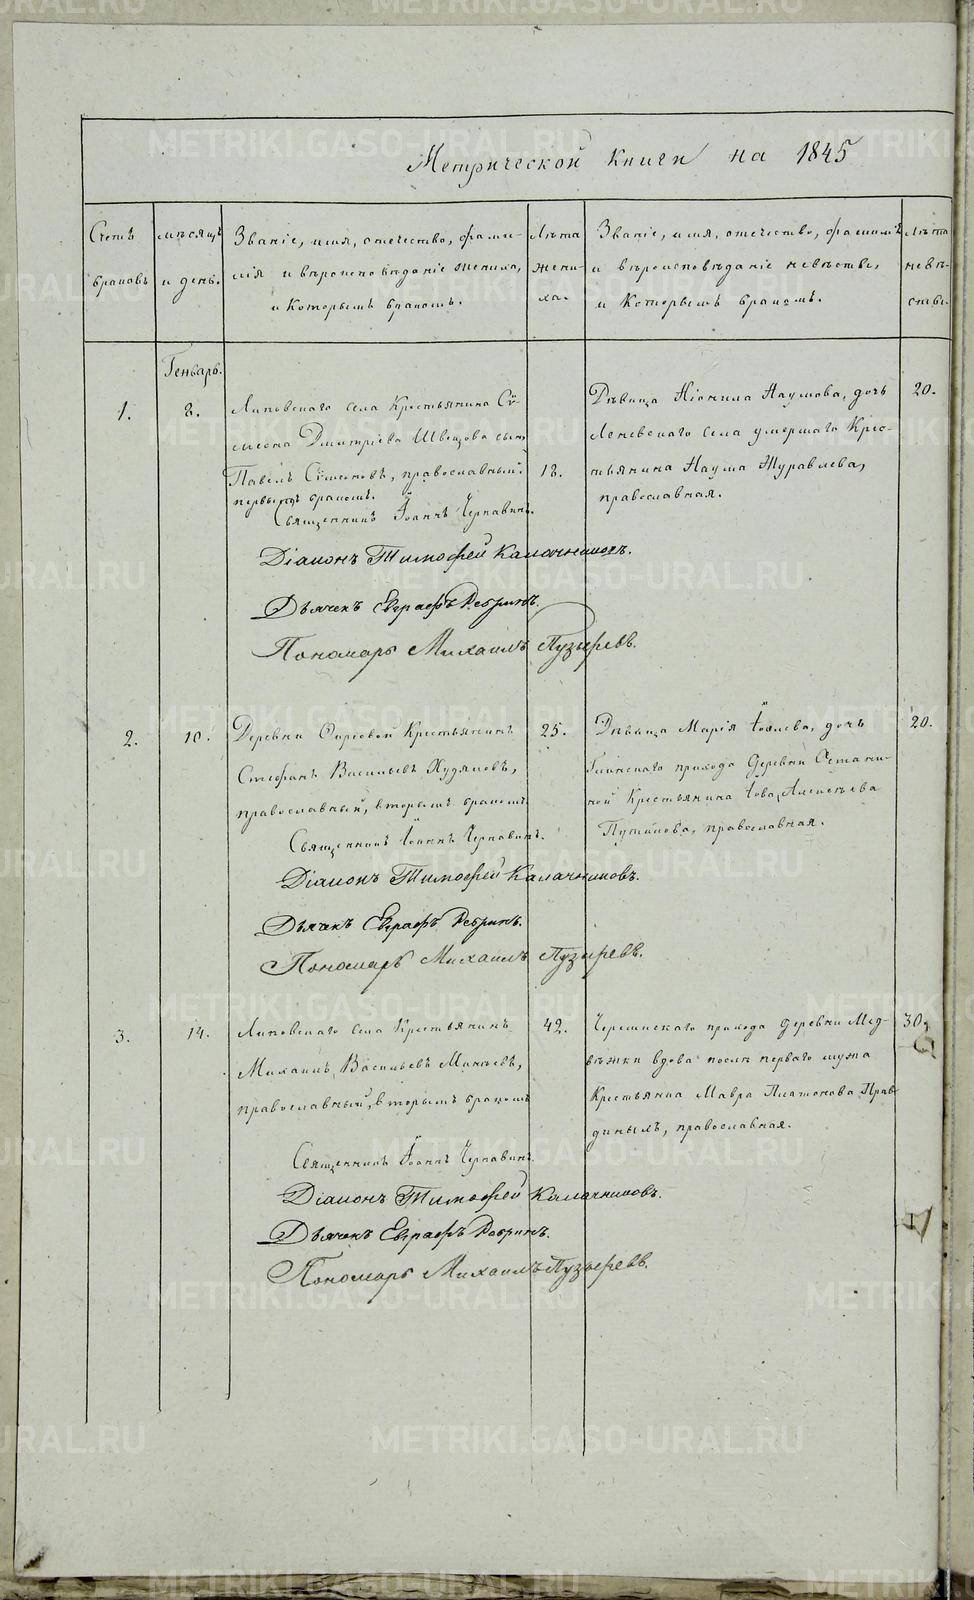 Метрической книги на 1845
Счетъ браковъ
мѣсяцъ и день.
Званіе, имя, отечество, фами-
лія и вѣроисповѣданіе жениха,
и которымъ бракомъ.
Лѣта
жени-
ха.
Званіе, имя, отечество, фамилія
и вѣроисповѣданіе невѣсты,
и которымъ бракомъ.
Лѣта
невѣ-
сты.
Генварь.
1.
8.
Липовскаго села Крестьянина Сѵ-
меона Дмитріева Швецова сынъ
Павелъ Сѵмеоновъ, православный,
первымъ бракомъ.
18.
Дѣвица Неонила Наумова, дочь
Леневскаго села умершаго Крес-
тьянина Наума Журавлева,
православная.
20.
Священникъ Іоаннъ Чернавинъ.
Діаконъ Тимофей Калачниковъ.
Дьячекъ Евграфъ Ребринъ.
Пономарь Михаилъ Пузыревъ.
2.
10.
Деревни Фирсовой Крестьянинъ
Стефанъ Васильевъ Худяковъ,
православный, вторымъ бракомъ
25.
Дѣвица Марія Іовлева, дочь
Глинскаго прихода деревни Остани-
ной Крестьянина Іова Алексѣева
Путилова, православная.
20.
Священникъ Іоаннъ Чернавинъ.
Діаконъ Тимофей Калачниковъ.
Дьячекъ Евграфъ Ребринъ.
Пономарь Михаилъ Пузыревъ.
3.
14.
Липовскаго села Крестьянинъ
Михаилъ Васильевъ Минѣевъ,
православный, вторымъ бракомъ
42.
Черемисскаго прихода деревни Мед-
вѣжки вдова послѣ перваго мужа
Крестьянка Мавра Платонова
православная.
30.
Священникъ Іоаннъ Чернавинъ.
Діаконъ Тимофей Калачниковъ.
Дьячекъ Евграфъ Ребринъ.
Пономарь Михаилъ Пузыревъ.
METRIKI.GASO-URAL.RU